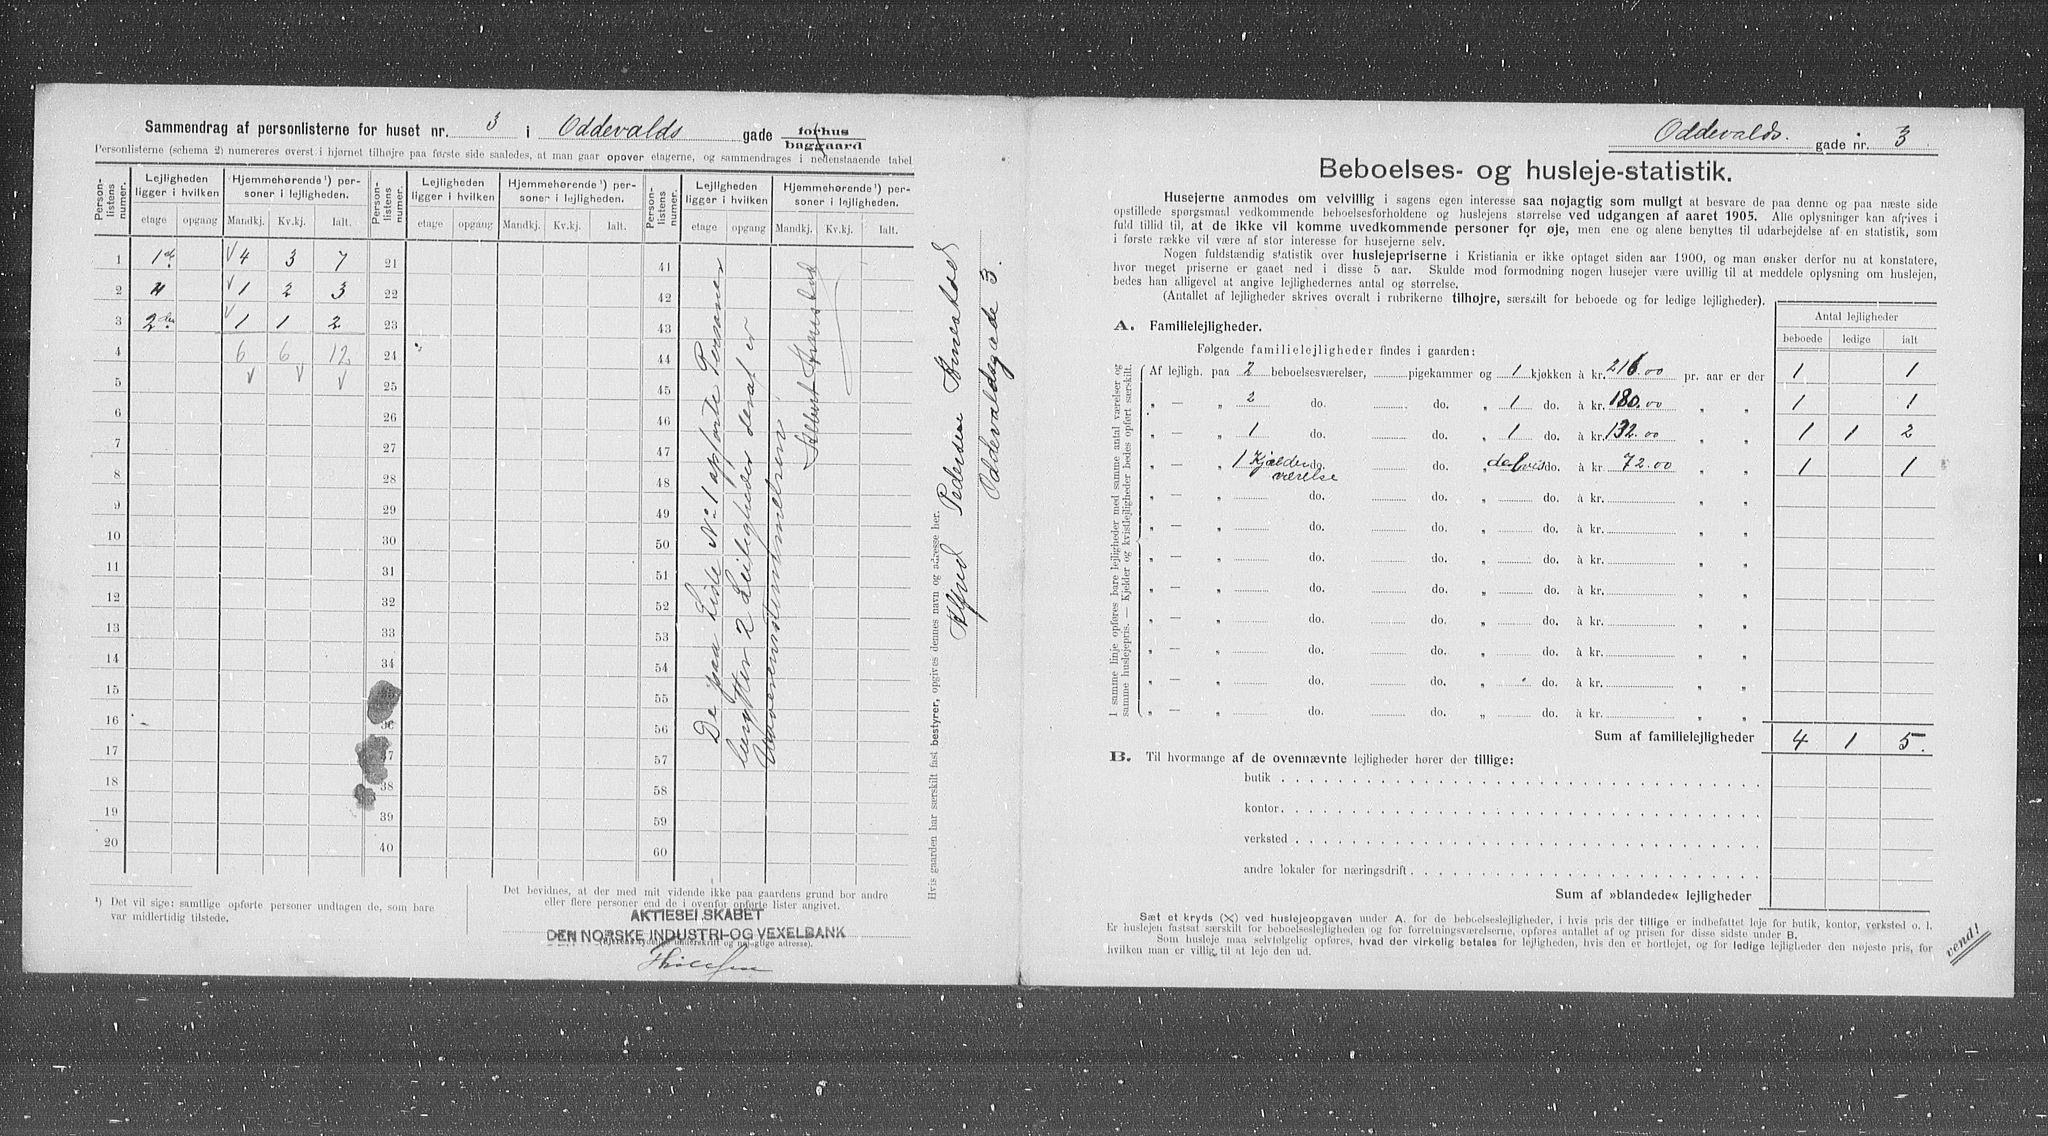 Sammendrag af personlisterne for huset nr. 3 i Oddevalds gade forhus
baggaard
Personlisterne (schema 2) numereres øverst i hjørnet tilhøjre paa første side saaledes, at man gaar opover etagerne, og sammendrages i nedenstaaende tabel
Person-listens numer. Lejligheden ligger i hvilken Hjemmehørende¹) personer i lejligheden. Person-listens numer. Lejligheden ligger i hvilken Hjemmehørende¹) personer i lejligheden. Person-listens numer. Lejligheden ligger i hvilken Hjemmehørende¹) personer i lejligheden.
etage opgang Mandkj. Kv.kj. Ialt. etage opgang Mandkj. Kv.kj. Ialt. etage opgang Mandkj. Kv.kj. Ialt.
1 1ste 4 3 7 21 41
2 " 1 2 3 22 42
3 2den 1 1 2 23 43
4 6 6 12 24 44
5 25 45
6 26 46
7 27 47
8 28 48
9 29 49
10 30 50
11 31 51
12 32 52
13 33 53
14 34 54
15 35 55
16 36 56
17 37 57
18 38 58
19 39 59
20 40 60
De paa Liste No 1 opførte Personer
2 Leiligheder deraf er
¹) Det vil sige: samtlige opførte personer undtagen de, som bare
var midlertidig tilstede.
Det bevidnes, at der med mit vidende ikke paa gaardens grund bor andre
eller flere personer end de i ovenfor opførte lister angivet.
AKTIESELSKABET
DEN NORSKE INDUSTRI-OG VEXELBANK
(Ejerens tydelige underskrift og nøjagtige adresse).
Hvis gaarden har særskilt fast bestyrer, opgives dennes navn og adresse her.
Alfred Pedersen
Oddevaldsgade 3.
Oddevalds. gade nr. 3
Beboelses- og husleje-statistik.
Husejerne anmodes om velvillig i sagens egen interesse saa nøjagtig som muligt at besvare de paa denne og paa næste side
opstillede spørgsmaal vedkommende beboelsesforholdene og huslejens størrelse ved udgangen af aaret 1905. Alle oplysninger kan afgives i
fuld tillid til, at de ikke vil komme uvedkommende personer for øje, men ene og alene benyttes til udarbejdelse af en statistik, som
i første række vil være af stor interesse for husejerne selv.
Nogen fuldstændig statistik over huslejepriserne i Kristiania er ikke optaget siden aar 1900, og man ønsker derfor nu at konstatere,
hvor meget priserne er gaaet ned i disse 5 aar. Skulde mod formodning nogen husejer være uvillig til at meddele oplysning om huslejen,
bedes han alligevel at angive lejlighedernes antal og størrelse.
(Antallet af lejligheder skrives overalt i rubrikerne tilhøjre, særskilt for beboede og for ledige lejligheder).
Antal lejligheder
beboede ledige ialt
A. Familielejligheder.
Følgende familielejligheder findes i gaarden:
I samme linje opføres bare lejligheder med samme antal værelser og
samme huslejepris. — Kjelder og kvistlejligheder bedes opført særskilt.
Af lejligh. paa 2 beboelsesværelser, pigekammer og 1 kjøkken à kr. 216.00 pr. aar er der 1 1
„ — „ 2 do. do. „ 1 do. à kr. 180.00 „ „ 1 1
„ — „ 1 do. do. „ 1 do. à kr. 132.00 „ „ 1 1 2
„ — „ 1 Kjælder do. do. delvis do. à kr. 72.00 „ „ 1 1
værelse
„ — „ do. do. „ do. à kr. „ „
„ — „ do. do. „ do. à kr. „ „
„ — „ do. do. „ do. à kr. „ „
„ — „ do. do. „ do. à kr. „ „
„ — „ do. do. „ do. à kr. „ „
„ — „ do. do. „ do. à kr. „ „
„ — „ do. do. „ do. à kr. „ „
„ — „ do. do. „ do. à kr. „ „
Sum af familielejligheder 4 1 5.
B. Til hvormange af de ovennævnte lejligheder hører der tillige:
butik
kontor
verksted
andre lokaler for næringsdrift
Sum af »blandede« lejligheder
Sæt et kryds (X) ved huslejeopgaven under A. for de beboelseslejligheder, i hvis pris der tillige er indbefattet leje for butik, kontor, verksted o. l.
Er huslejen fastsat særskilt for beboelseslejligheden og for forretningsværelserne, opføres antallet af og prisen for disse sidste under B.
Som husleje maa selvfølgelig opføres, hvad der virkelig betales for lejligheden, hvis den er bortlejet, og for ledige lejligheder den nøjeste pris, for
hvilken man er villig til at leje den ud.
vend!